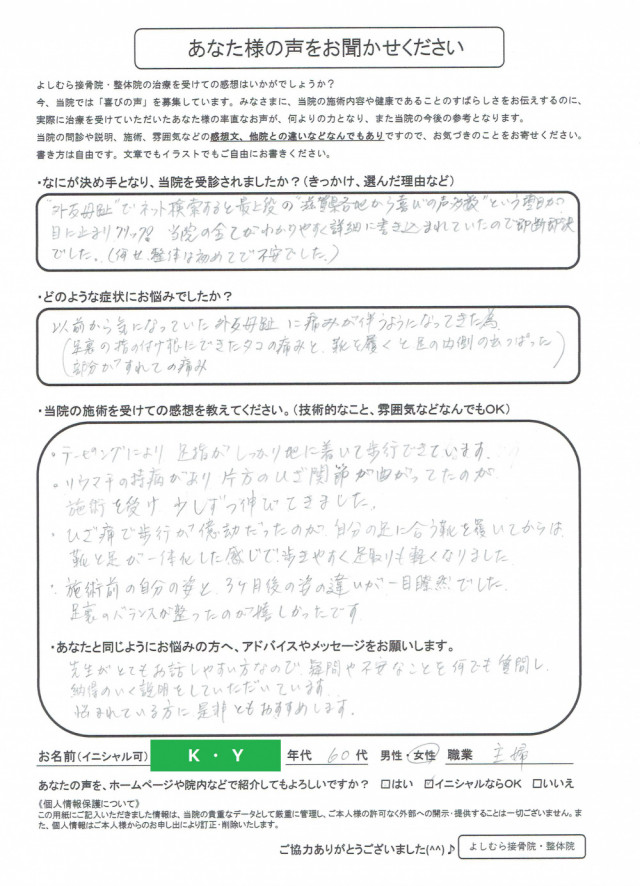 あなた様の声をお聞かせください
よしむら接骨院・整体院の治療を受けての感想はいかがでしょうか？
今、当院では「喜びの声」を募集しています。みなさまに、当院の施術内容や健康であることのすばらしさをお伝えするのに、
実際に治療を受けていただいたあなた様の率直なお声が、何よりの力となり、また当院の今後の参考となります。
当院の問診や説明、施術、雰囲気などの感想文、他院との違いなどなんでもありですので、お気づきのことをお寄せください。
書き方は自由です。文章でもイラストでもご自由にお書きください。
・なにが決め手となり、当院を受診されましたか？（きっかけ、選んだ理由など）
"外反母趾"でネット検索すると最上段の"滋賀県各地から喜びの声多数"という理由が
目に止まりクリック? 当院の全てがわかりやすく詳細に書き込まれていたので即断即決
でした。（何せ、整体は初めてで不安でした。）
・どのような症状にお悩みでしたか？
以前から気になっていた外反母趾に痛みが伴うようになってきた為
（足裏の指の付け根にできたタコの痛みと、靴を履くと足の内側のでっぱった
部分がすれての痛み）
・当院の施術を受けての感想を教えてください。（技術的なこと、雰囲気などなんでもOK）
・テーピングにより 足指がしっかり地に着いて歩行できています。
・リウマチの持病があり 片方のひざ関節が曲がってたのが
施術を受け 少しずつ伸びてきました。
・ひざ痛で歩行が億劫だったのが、自分の足に合う靴を履いてからは
靴と足が一体化した感じで歩きやすく足取りも軽くなりました
・施術前の自分の姿と、3ヶ月後の姿の違いが一目瞭然でした。
足裏のバランスが整ったのが嬉しかったです
・あなたと同じようにお悩みの方へ、アドバイスやメッセージをお願いします。
先生がとてもお話しやすい方なので、疑問や不安なことを何でも質問し、
納得のいく説明をしていただいています。
悩まれている方に是非ともおすすめします。
お名前（イニシャル可） K・Y 年代 60代 男性・女性 職業 主婦
あなたの声を、ホームページや院内などで紹介してもよろしいですか？ □はい ☑イニシャルならOK □いいえ
《個人情報保護について》
この用紙にご記入いただきました情報は、当院の貴重なデータとして厳重に管理し、ご本人様の許可なく外部への開示・提供することは一切ございません。ま
た、個人情報はご本人様からのお申し出により訂正・削除いたします。
ご協力ありがとうございました(^^)♪ よしむら接骨院・整体院